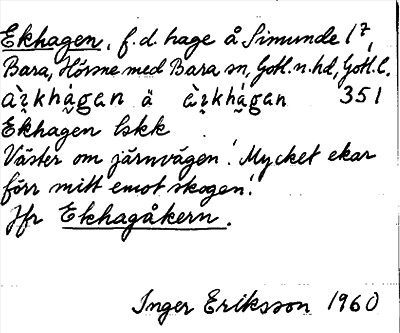 Ekhagen, f.d. hage å Simunde 1⁷,
Bara, Hörsne med Bara sn, Gotl. n. hd, Gotl. l.
ä 351
Ekhagen lskk
Väster om järnvägen. Mycket ekar
förr mitt emot skogen.
Jfr Ekhagåkern.
Inger Eriksson 1960